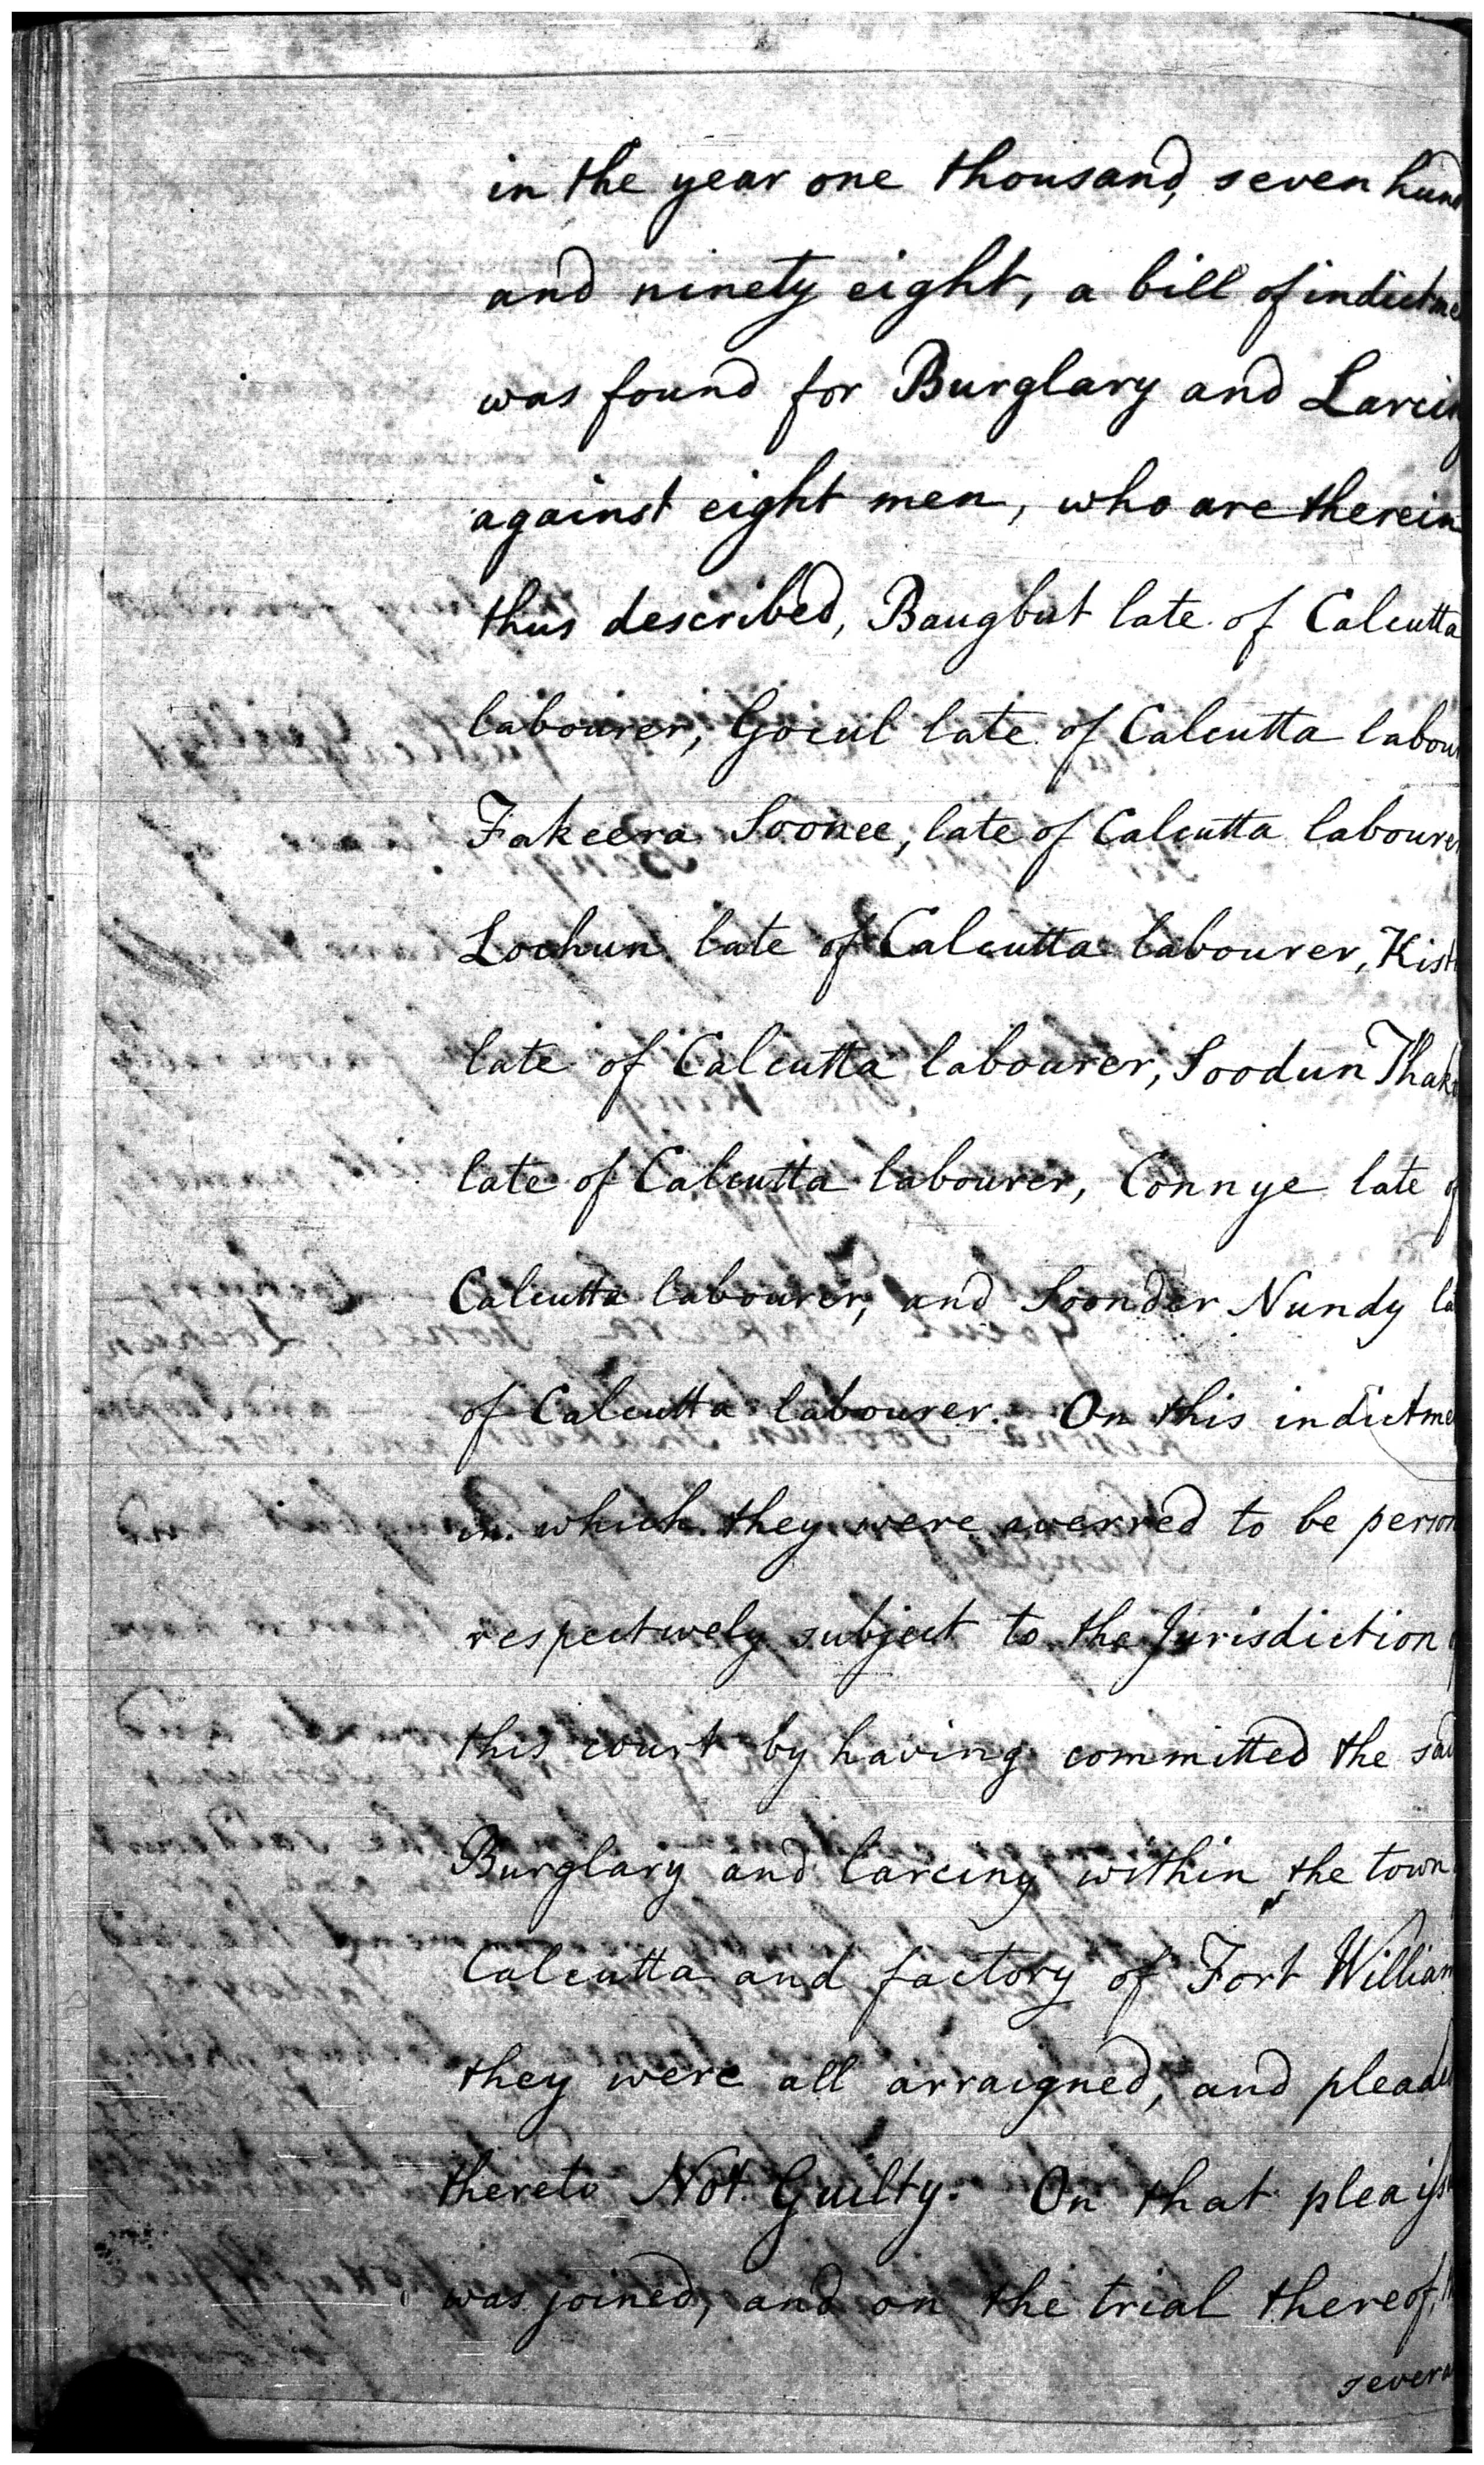 in the year one thousand, seven hund
and ninety eight, a bill of indictme
was found for Burglary and Larcin
against eight men, who are therein
thus described, Baugbut late of Calcutta
labourer, Gocul late of Calcutta labour
Fakeera Soonee, late of Calcutta labourer
Lochun late of Calcutta labourer, Kist
late of Calcutta labourer, Soodun Thak
late of Calcutta labourer, Connye late of
Calcutta labourer, and Soonder Nundy la
of Calcutta labourer. On this indictme
in which they were averred to be person
respectively subject to the Jurisdiction
this court by having committed the sai
Burglary and larceny within the town
Calcutta and factory of Fort William
they were all arraigned, and pleade
thereto Not Guilty. On that plea iss
was joined, and on the trial thereof,
severa